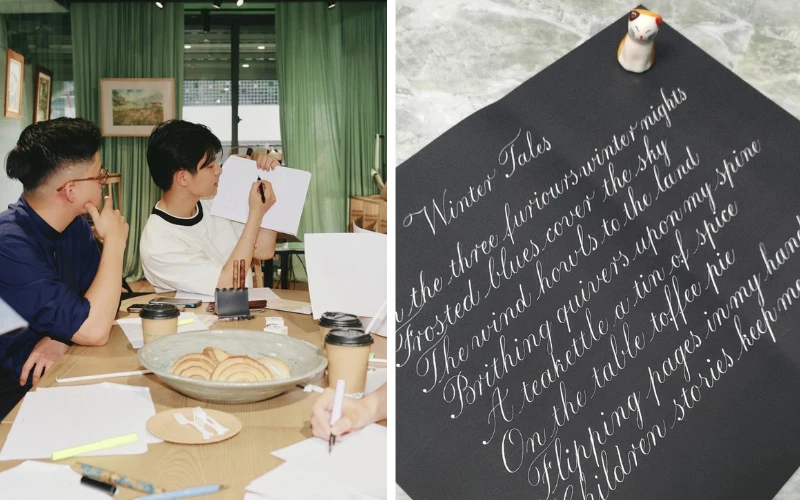 Winter Tales
the three furiours winter nights
Frosted blues cover the sky
The wind howls to the land
Brithing quivers upon my spine
A teakettle a tin of spice
On the table toffee pie
Flipping pages in my hand
Children stories keep